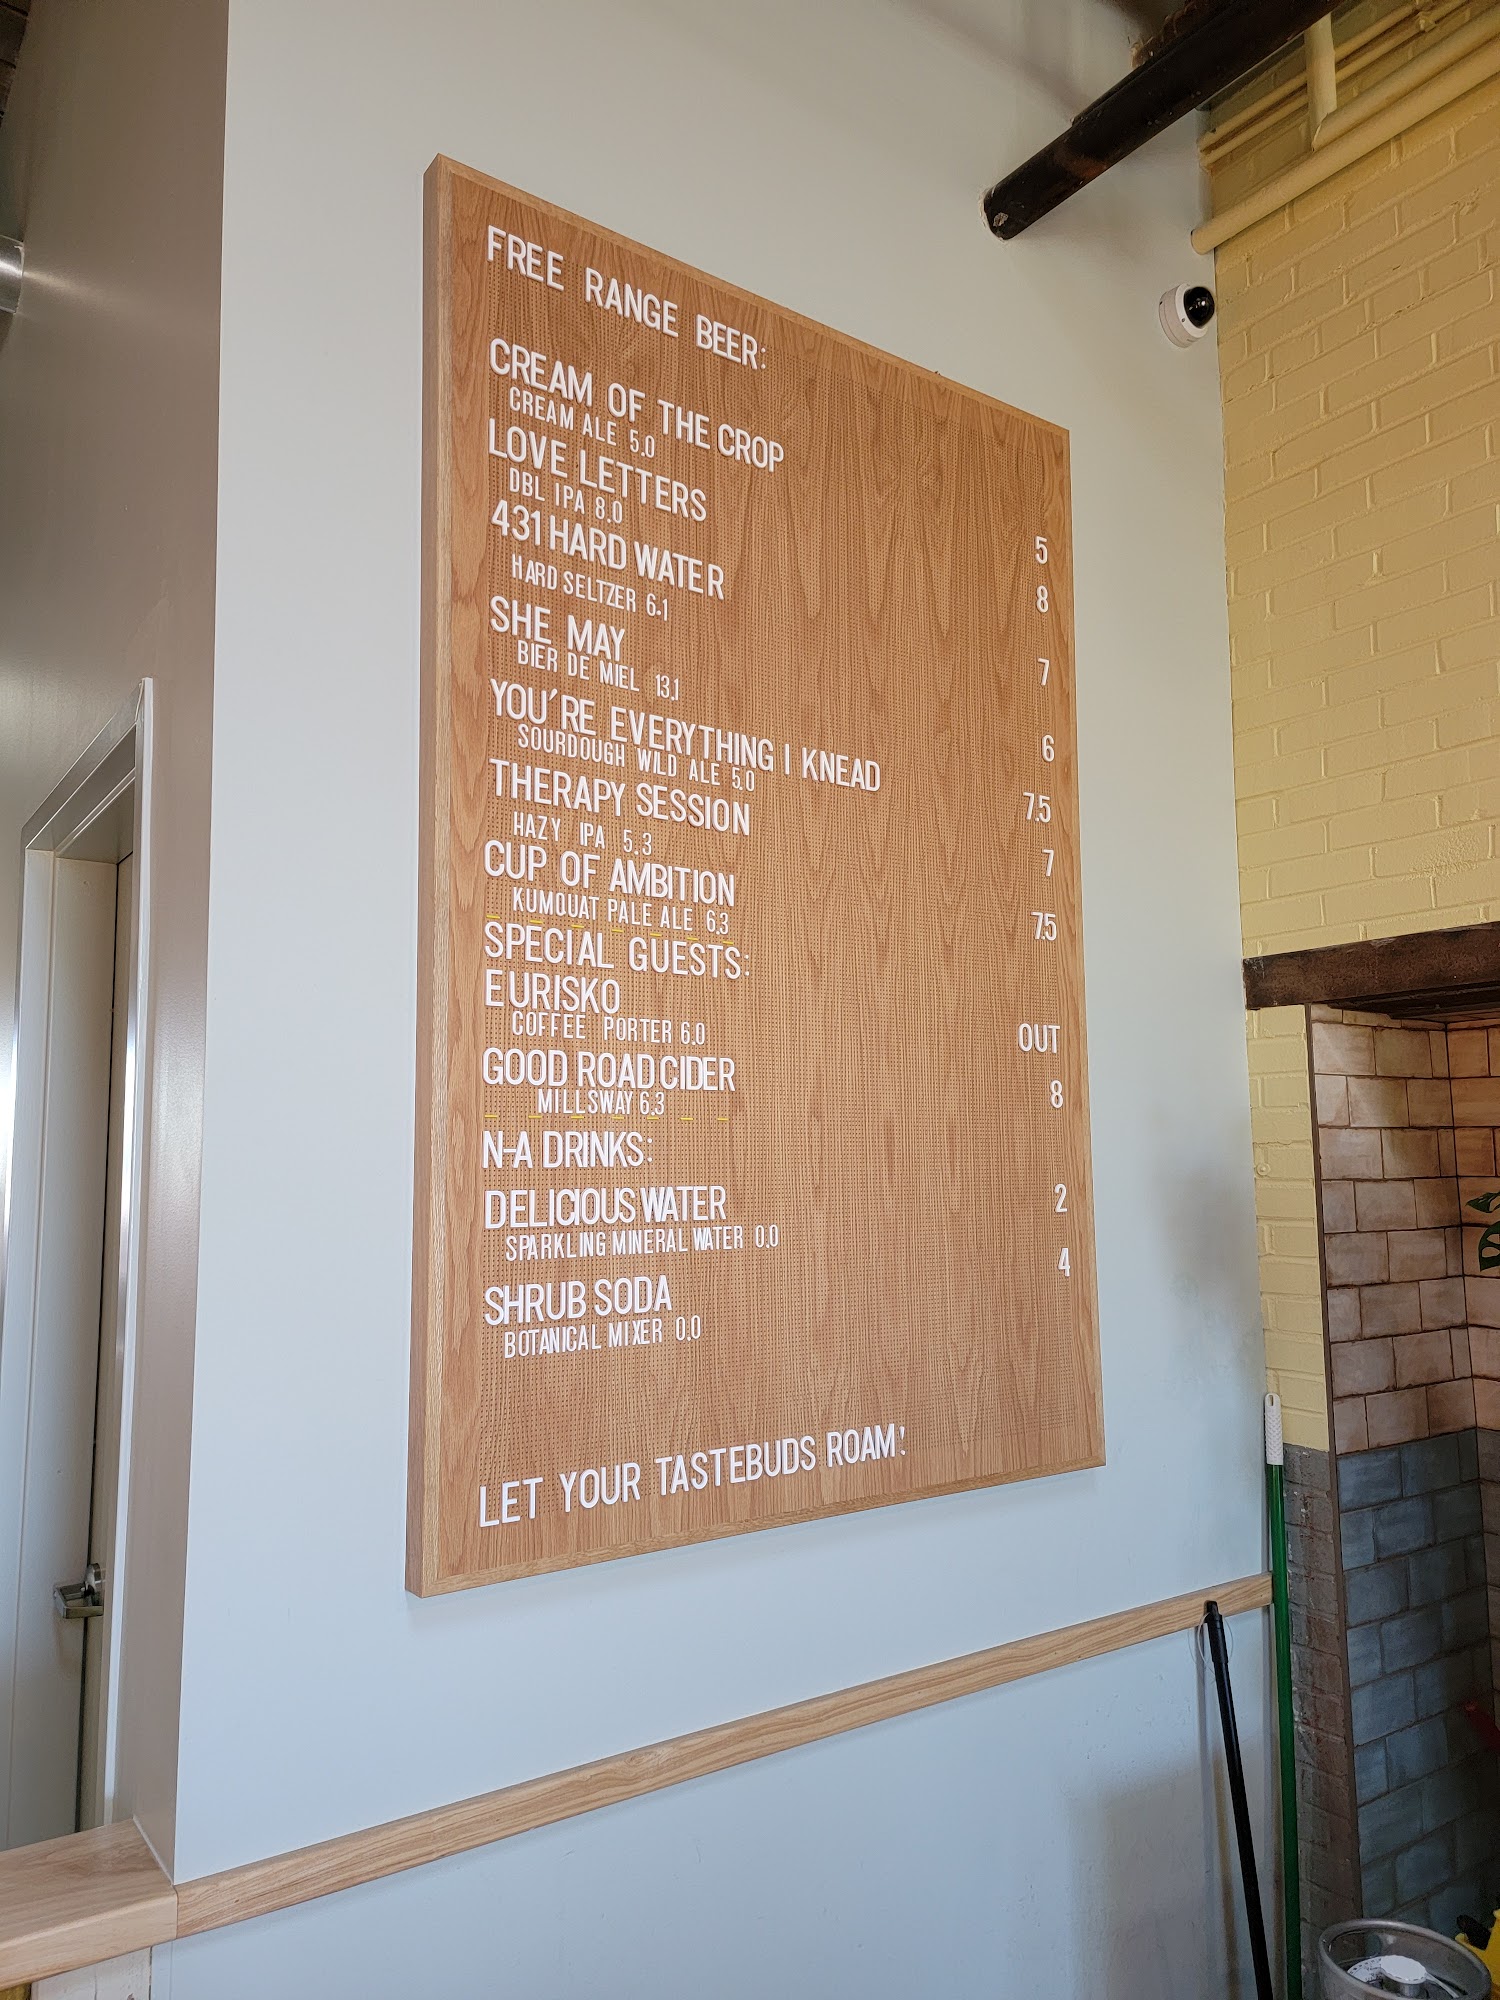 FREE RANGE BEER:
CREAM OF THE CROP 5
CREAM ALE 5.0
LOVE LETTERS 8
DBL IPA 8.0
431 HARD WATER 7
HARD SELTZER 6.1
SHE MAY 6
BIER DE MIEL 13.1
YOU'RE EVERYTHING I KNEAD 7.5
SOURDOUGH WILD ALE 5.0
THERAPY SESSION 7
HAZY IPA 5.3
CUP OF AMBITION 7.5
KUMQUAT PALE ALE 6.3
SPECIAL GUESTS:
EURISKO OUT
COFFEE PORTER 6.0
GOOD ROAD CIDER 8
MILLSWAY 6.3
N-A DRINKS:
DELICIOUS WATER 2
SPARKLING MINERAL WATER 0.0
SHRUB SODA 4
BOTANICAL MIXER 0.0
LET YOUR TASTEBUDS ROAM!